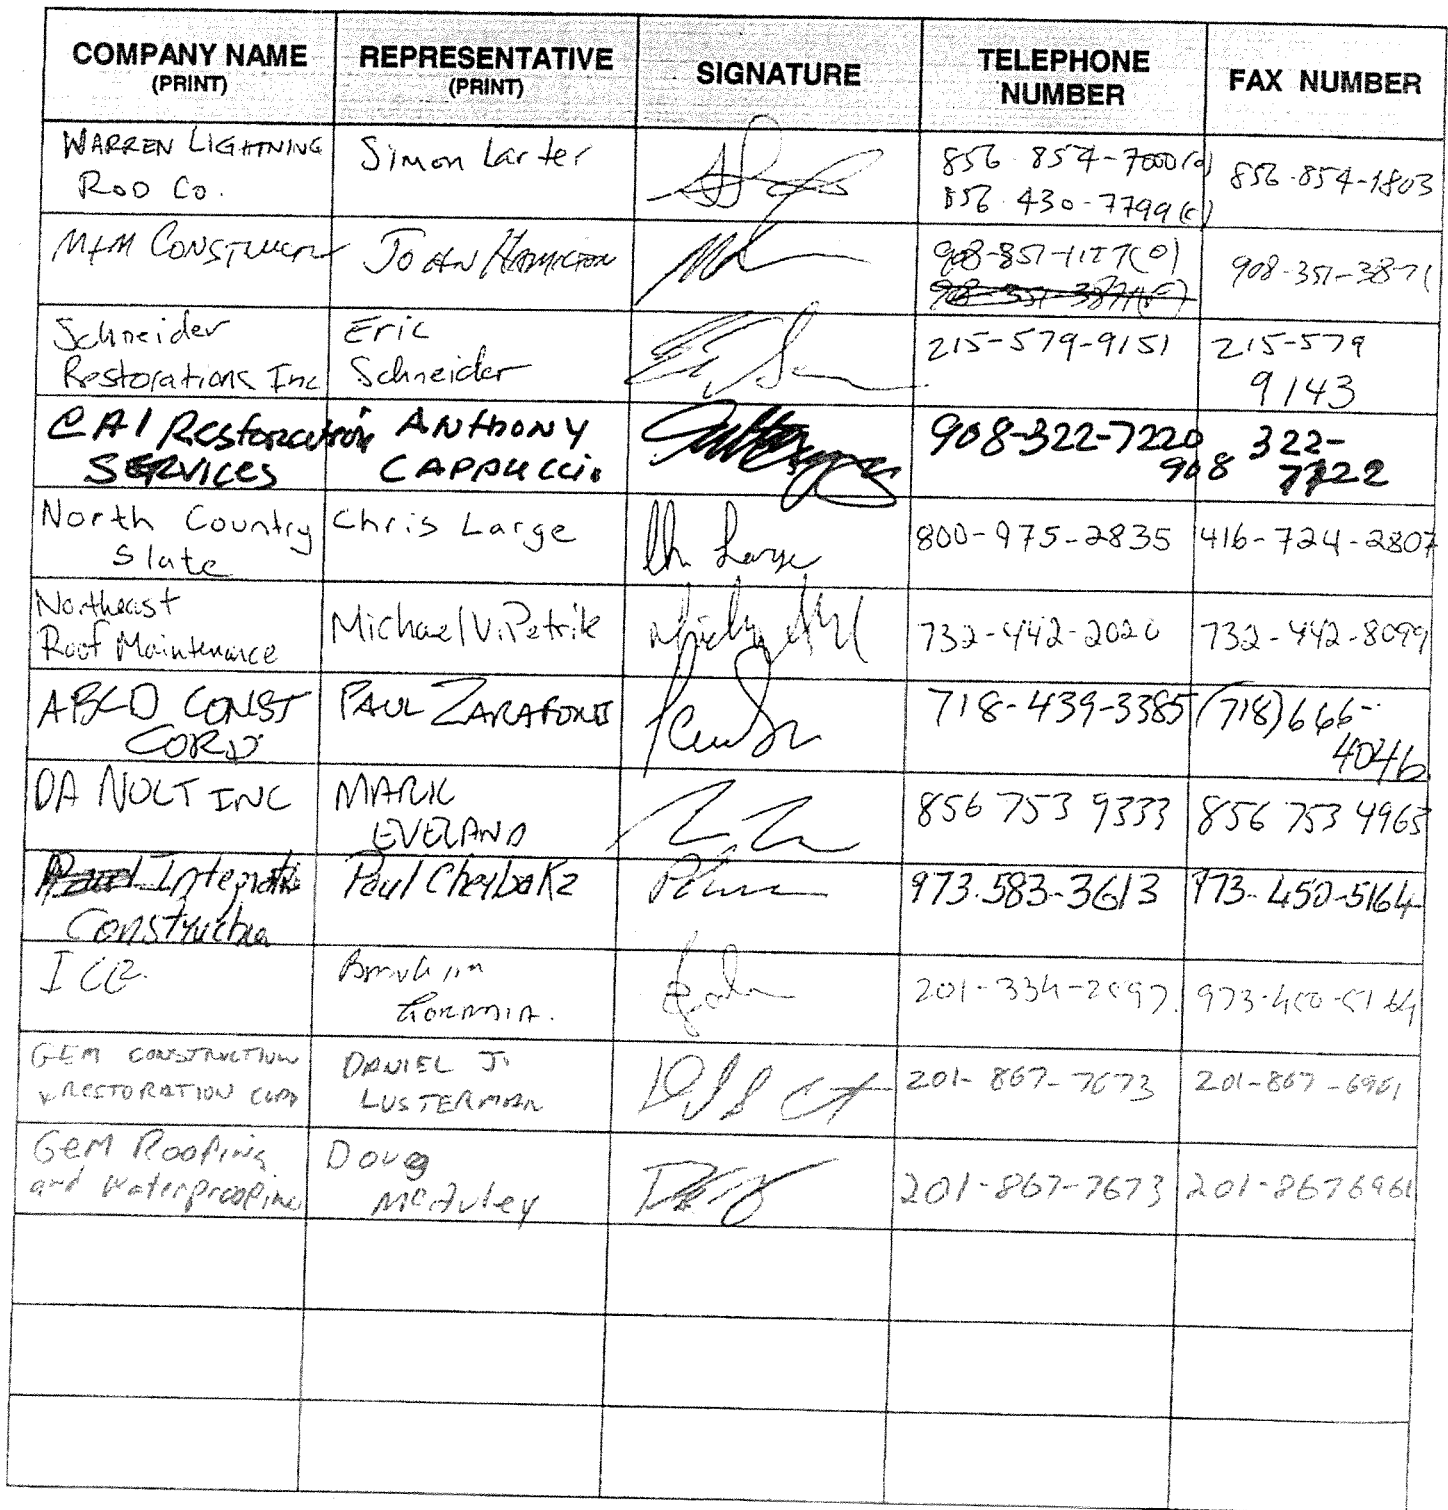 COMPANY NAME
(PRINT)
REPRESENTATIVE
(PRINT)
SIGNATURE
TELEPHONE
NUMBER
FAX NUMBER
WARREN LIGHTNING
ROD CO.
Simon Larter
856 854-7000(o)
856 430-7799(c)
856-854-1803
M+M
JOHN HAMILTON
(O)
908-351-3871
Schneider
Restorations Inc
Eric
Schneider
215-579-9151
215-579
9143
CAI Restoration
SERVICES
ANTHONY
CAPPUCCIO
908-322-7220
322-
908 7722
North Country
Slate
Chris Large
Ch Large
800-975-2835
416-724-2807
Northeast
Roof Maintenance
Michael V. Petrik
732-442-2020
732-442-8099
ABCD CONST
CORP
PAUL
718-439-3385
(718)666-
4046
DA NOLT INC
MARK
EVELAND
856 753 9333
856 753 4963
Construction
Paul
973.583-3613
973-450-5164
201-334-2897
GEM CONSTRUCTION
& RESTORATION CORP
DANIEL J.
LUSTERMAN
201-867-7673
201-867-6961
GEM Roofing
and Waterproofing
Doug
McAuley
201-867-7673
201-8676961